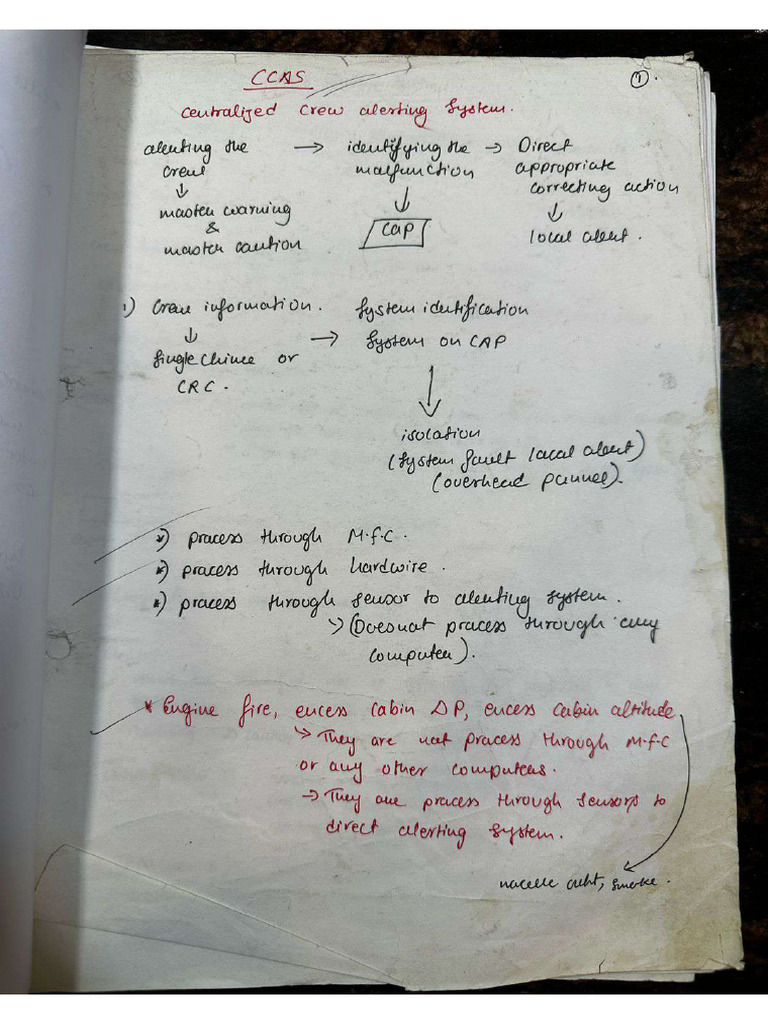 CCAS
①.
Centralized Crew alerting System.
alerting the → identifying the → Direct
crew malfunction appropriate
correcting action
↓ ↓ ↓
master warning CAP local alert.
&
master caution
1) Crew information. System identification
↓ → System on CAP
Single Chime or
CRC.
↓
isolation
(System fault local alert)
(overhead pannel).
*) process through M.f.C.
*) process through hardwire.
*) process through sensor to alerting system.
↳ (Doesnot process through any
computer).
* Engine fire, excess cabin DP, excess cabin altitude
↳ They are not process through M.f.C
or any other computers.
→ They are process through sensors to
direct alerting system.
nacelle , smoke.